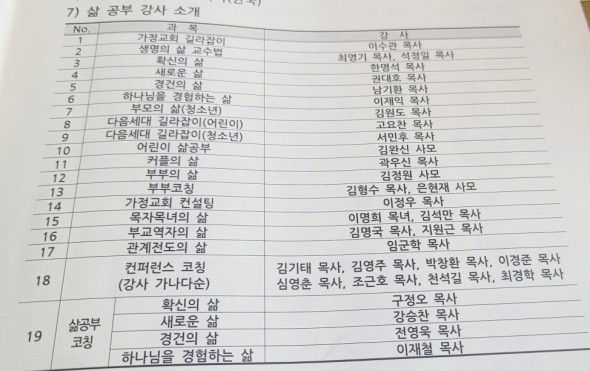 7) 삶 공부 강사 소개
No. 과 목 강 사
1 가정교회 길라잡이 이수관 목사
2 생명의 삶 교수법 최영기 목사, 석정일 목사
3 확신의 삶 한명석 목사
4 새로운 삶 권대호 목사
5 경건의 삶 남기환 목사
6 하나님을 경험하는 삶 이재익 목사
7 부모의 삶(청소년) 김원도 목사
8 다음세대 길라잡이(어린이) 고요찬 목사
9 다음세대 길라잡이(청소년) 서민후 목사
10 어린이 삶공부 김완신 사모
11 커플의 삶 곽우신 목사
12 부부의 삶 김정원 사모
13 부부코칭 김형수 목사, 은현재 사모
14 가정교회 컨설팅 이정우 목사
15 목자목녀의 삶 이명희 목녀, 김석만 목사
16 부교역자의 삶 김명국 목사, 지원근 목사
17 관계전도의 삶 임군학 목사
18 컨퍼런스 코칭 김기태 목사, 김영주 목사, 박창환 목사, 이경준 목사
(강사 가나다순) 심영춘 목사, 조근호 목사, 천석길 목사, 최경학 목사
19 삶공부 코칭 확신의 삶 구정오 목사
새로운 삶 강승찬 목사
경건의 삶 전영욱 목사
하나님을 경험하는 삶 이재철 목사